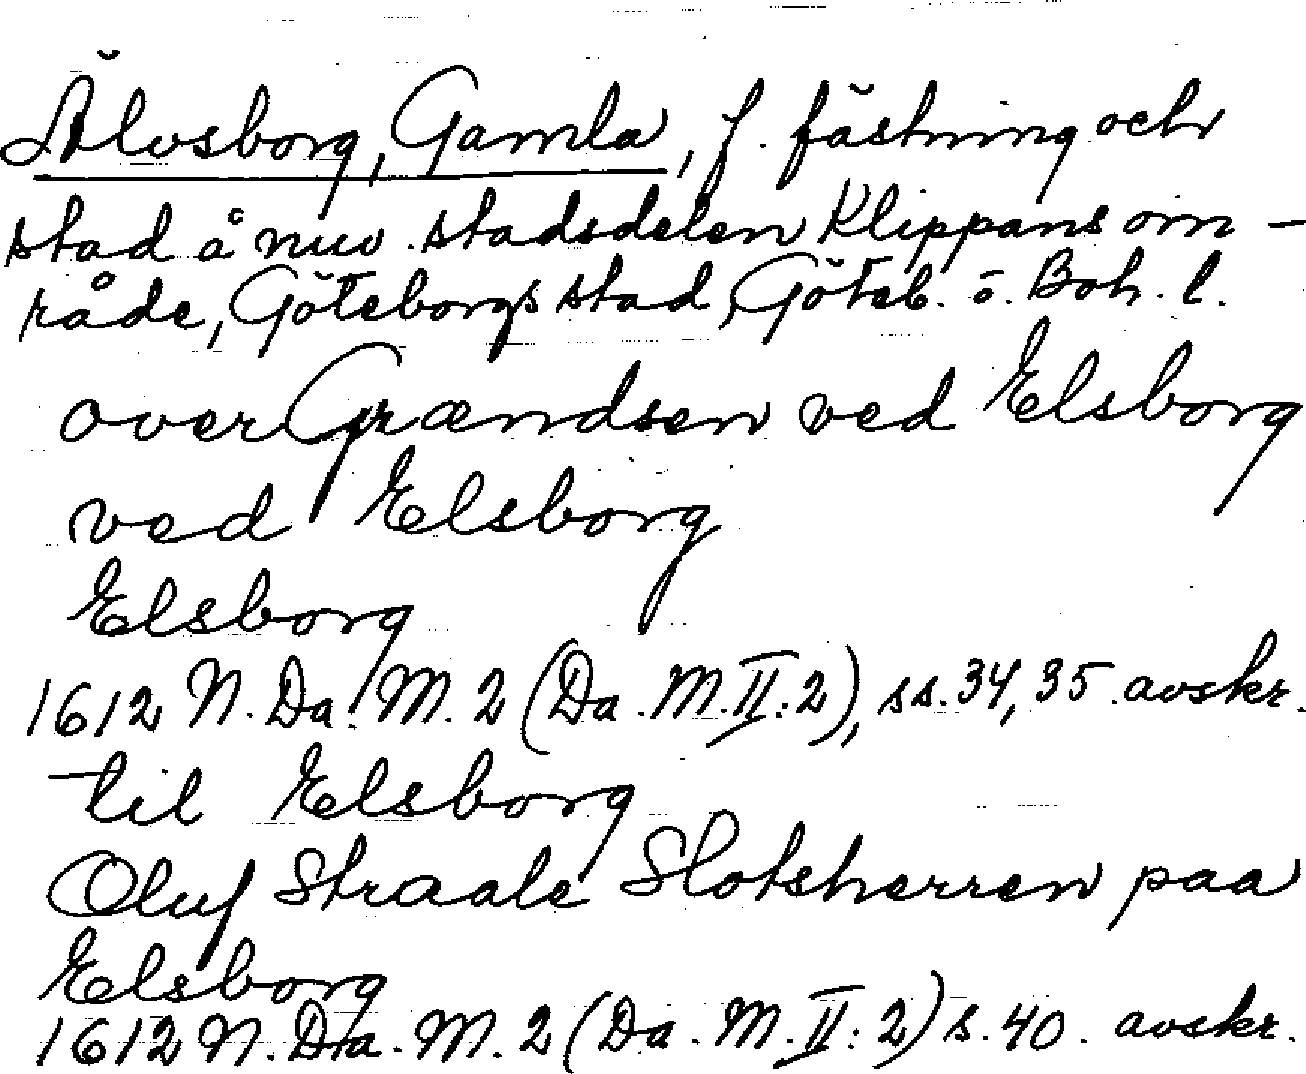 Älvsborg, Gamla, f. fästning och
stad å nuv. stadsdelen Klippans om-
råde, Göteborgs stad, Göteb. o. Boh. l.
over Grændsen ved Elsborg
ved Elsborg
Elsborg
1612 N. Da. M. 2 (Da. M. II:2), ss. 34, 35. avskr.
til Elsborg
Oluf Straale Slotsherren paa
Elsborg
1612 N. Da. M. 2 (Da. M. II:2) s. 40. avskr.